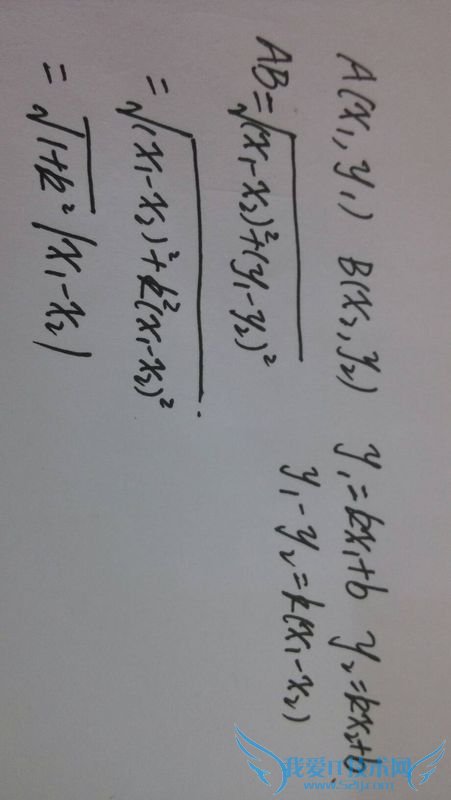 A(x₁, y₁) B(x₂, y₂) y₁=kx₁+b y₂=kx₂+b.
y₁-y₂=k(x₁-x₂)
AB=√((x₁-x₂)²+(y₁-y₂)²)
=√((x₁-x₂)²+k²(x₁-x₂)²).
=√(1+k²) |x₁-x₂|
我爱IT技术网
www.52ij.com